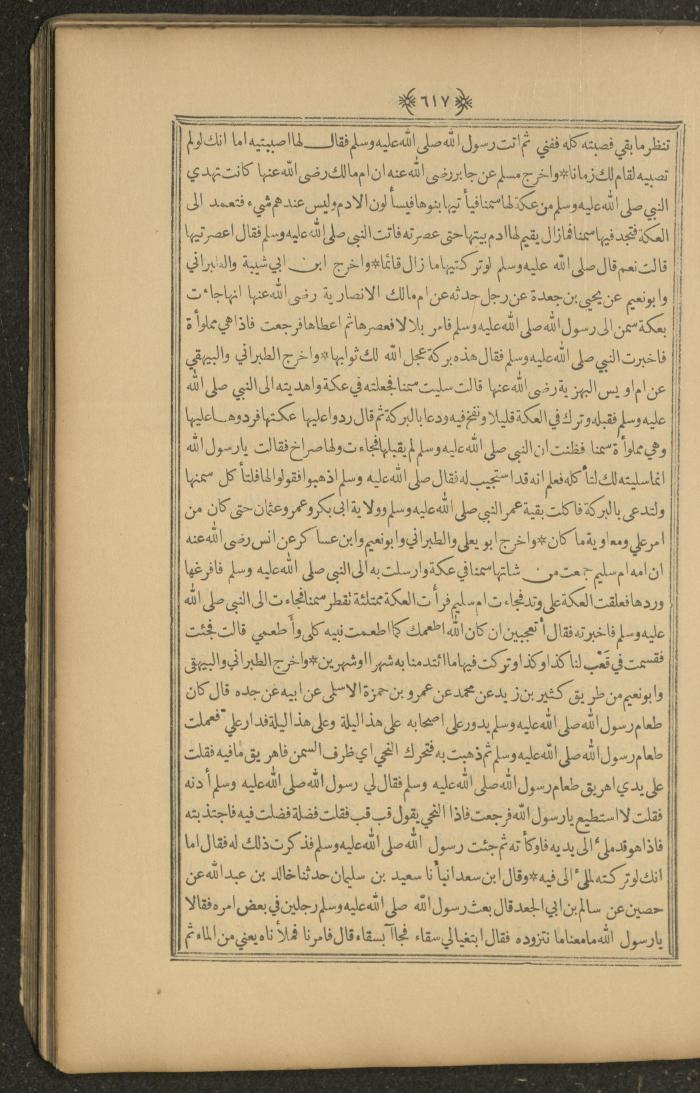 ٦١٧
تنظر ما بقي فصبته كله ففني ثم اتت رسول الله صلى الله عليه وسلم فقال لها اصببتيه اما انك لو لم
تصبيه لقام لك زمانا*واخرج مسلم عن جابر رضي الله عنه ان ام مالك رضي الله عنها كانت تهدي
النبي صلى الله عليه وسلم من عكة لها سمنا فيأ تيها بنوها فيسألون الادم وليس عندهم شيء فتعمد الى
العكة فتجد فيها سمنا فما زال يقيم لها ادم بيتها حتى عصرته فاتت النبي صلى الله عليه وسلم فقال اعصرتيها
قالت نعم قال صلى الله عليه وسلم لو تركتيها ما زال قائما*واخرج ابن ابي شيبة والطبراني
وابو نعيم عن يحيى بن جعدة عن رجل حدثه عن ام مالك الانصارية رضي الله عنها انها جاءت
بعكة سمن الى رسول الله صلى الله عليه وسلم فامر بلالا فعصرها ثم اعطاها فرجعت فاذا هي مملوأة
فاخبرت النبي صلى الله عليه وسلم فقال هذه بركة عجل الله لك ثوابها*واخرج الطبراني والبيهقي
عن ام اويس البهزية رضي الله عنها قالت سليت سمنا فجعلته في عكة واهديته الى النبي صلى الله
عليه وسلم فقبله وترك في العكة قليلا ونفخ فيه ودعا بالبركة ثم قال ردوا عليها عكتها فردوها عليها
وهي مملوأة سمنا فظنت ان النبي صلى الله عليه وسلم لم يقبلها فجاءت ولها صراخ فقالت يارسول الله
انما سليته لك لتأكله فعلم انه قد استجيب له فقال صلى الله عليه وسلم اذهبوا فقولوا لها فلتأكل سمنها
ولتدعى بالبركة فاكلت بقية عمر النبي صلى الله عليه وسلم وولاية ابى بكر وعمر وعثمان حتى كان من
امر علي ومعاوية ما كان*واخرج ابو يعلى والطبراني وابو نعيم وابن عساكر عن انس رضي الله عنه
ان امه ام سليم جمعت من شاتها سمنا في عكة وارسلت به الى النبي صلى الله عليه وسلم فافرغها
وردها فعلقت العكة على وتد فجاءت ام سليم فرأت العكة ممتلئة تقطر سمنا فجاءت الى النبي صلى الله
عليه وسلم فاخبرته فقال أتعجبين ان كان الله اطعمك كما اطعمت نبيه كلى وأطعمي قالت فجئت
فقسمت في قَعْب لنا كذا وكذا وتركت فيها ما ائتدمنا به شهرا او شهرين*واخرج الطبراني والبيهقى
وابو نعيم من طريق كثير بن زيد عن محمد عن عمرو بن حمزة الاسلمى عن ابيه عن جده قال كان
طعام رسول الله صلى الله عليه وسلم يدور على اصحابه على هذا ليلة وعلى هذا ليلة فدار عليّ فعملت
طعام رسول الله صلى الله عليه وسلم ثم ذهبت به فتحرك النحي اي ظرف السمن فاهريق ما فيه فقلت
على يدي اهريق طعام رسول الله صلى الله عليه وسلم فقال لي رسول الله صلى الله عليه وسلم أدنه
فقلت لا استطيع يارسول الله فرجعت فاذا النحي يقول قب قب فقلت فضلة فضلت فيه فاجتذبته
فاذا هو قد ملئ الى يديه فاوكأته ثم جئت رسول الله صلى الله عليه وسلم فذكرت ذلك له فقال اما
انك لو تركته لملئ الى فيه*وقال ابن سعد انبأنا سعيد بن سليمان حدثنا خالد بن عبد الله عن
حصين عن سالم بن ابي الجعد قال بعث رسول الله صلى الله عليه وسلم رجلين في بعض امره فقالا
يارسول الله ما معنا ما نتزوده فقال ابتغيا لي سقاء فجاآ بسقاء قال فامرنا فملأناه يعني من الماء ثم